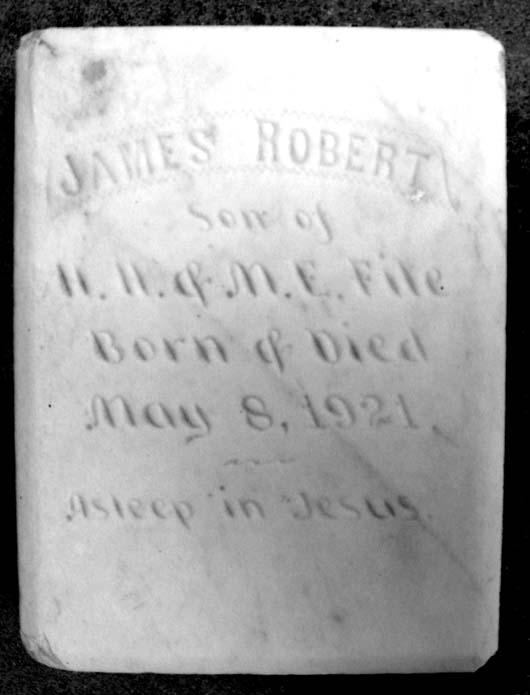 JAMES ROBERT
Son of
& M. E. Fite
Born & Died
May 8, 1921.
Asleep in Jesus.